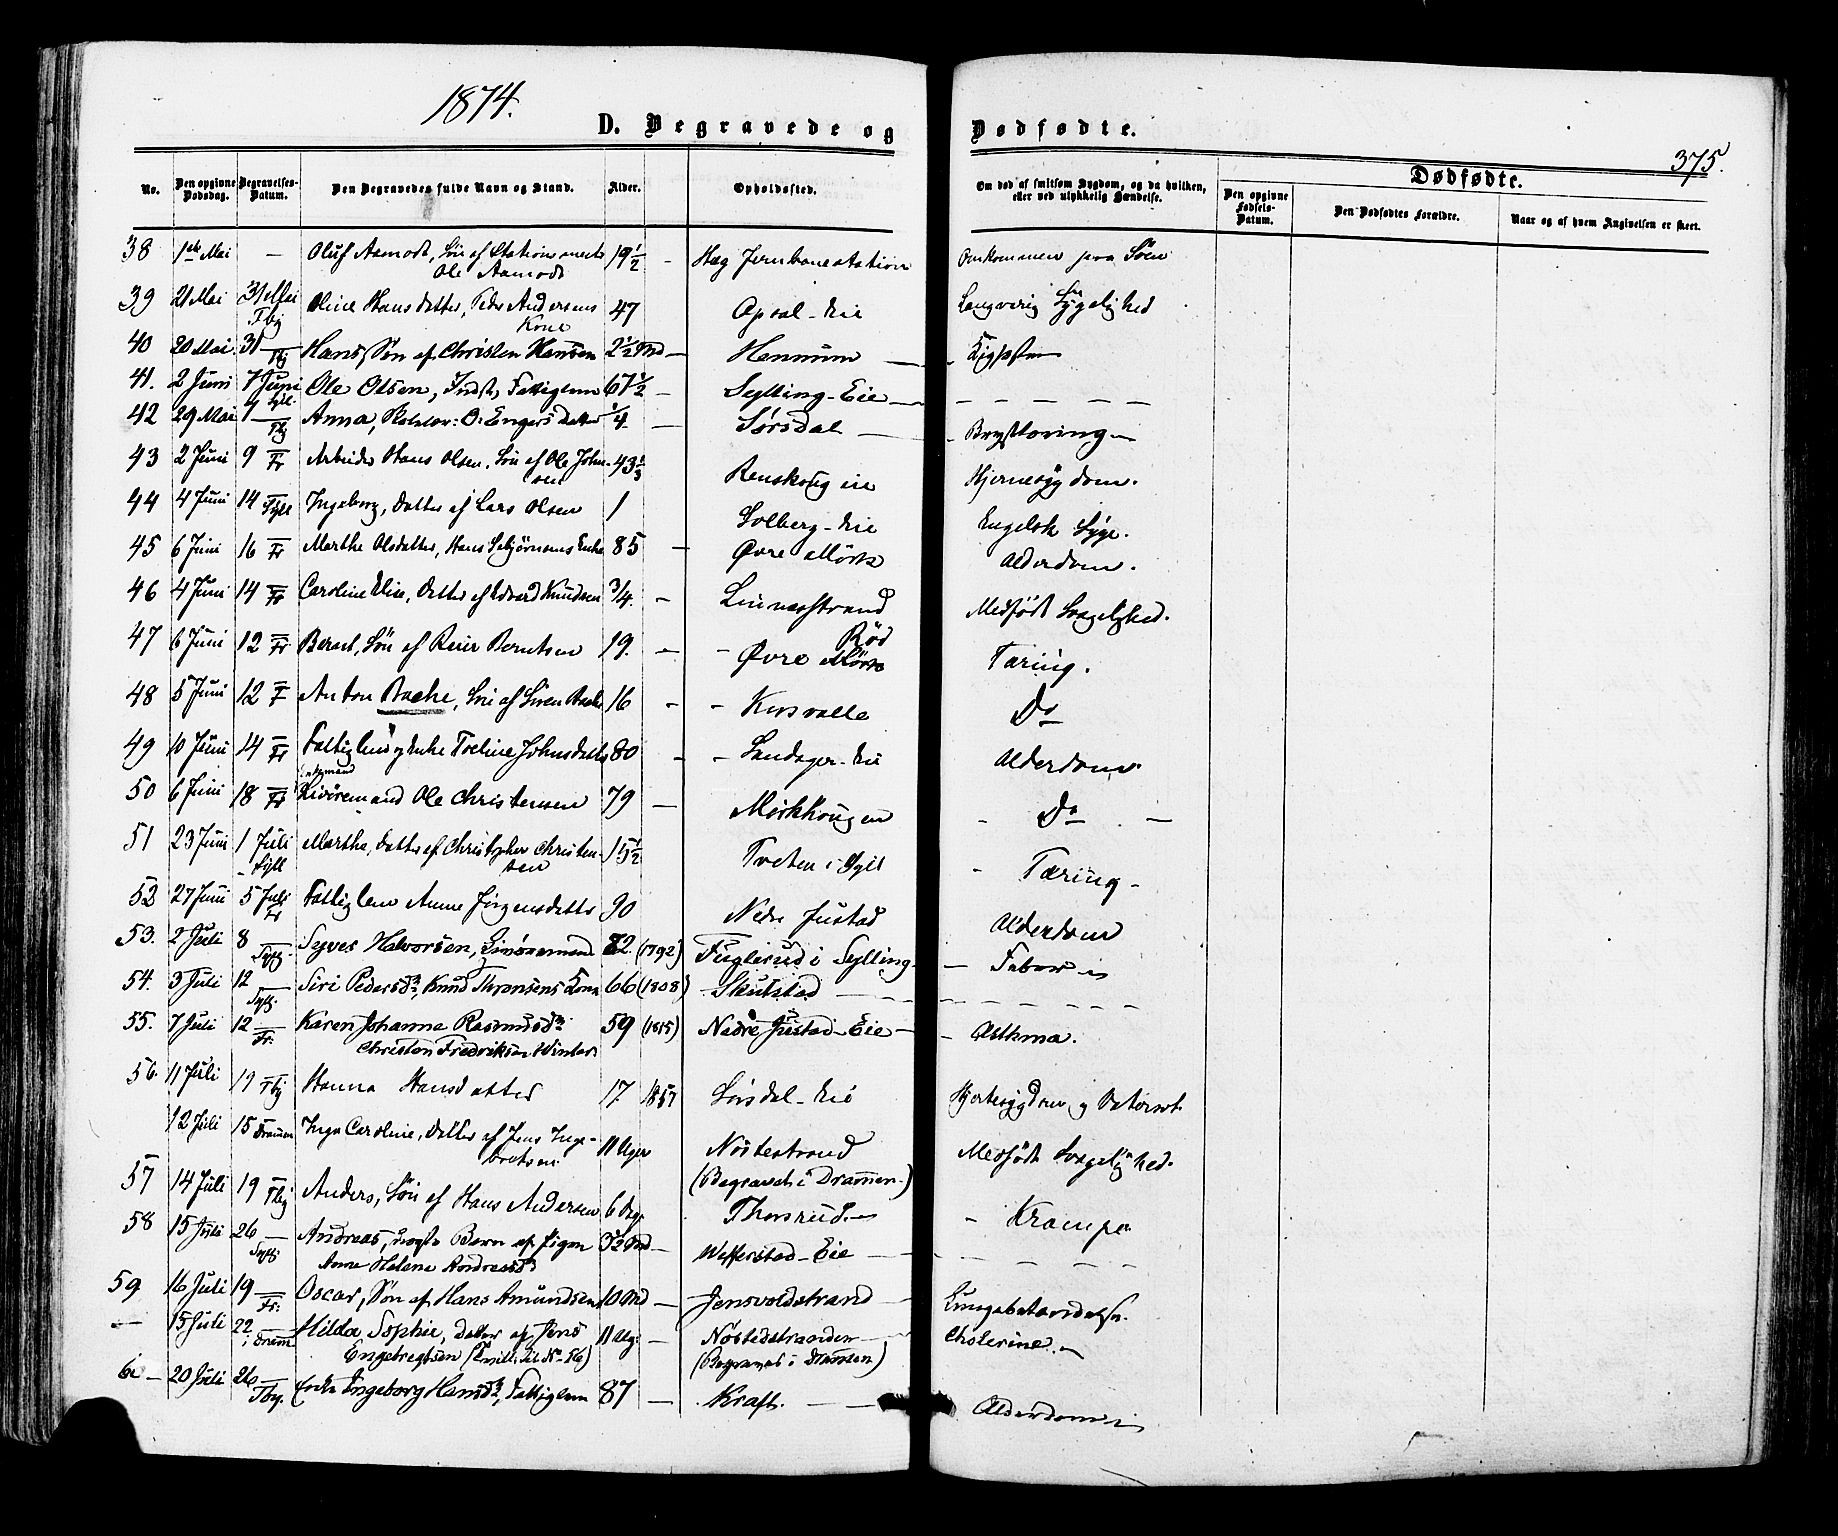 1874.
D. Begravede og Dødfødte.
375.
No. Den opgivne Dødsdag. Begravelses-Datum. Den Begravedes fulde Navn og Stand. Alder. Opholdssted. Om død af smitsom Sygdom, og da hvilken, eller ved ulykkelig Hændelse. Dødfødte. Den opgivne Fødsels-Datum. Den Dødfødtes Forældre. Naar og af hvem Angivelsen er skeet.
38 1ste Mai — Oluf Aamodt, Søn af Stationsmester 19 1/2 - Høg Jernbanestation Omkommen paa Søen
Ole Aamodt
39 21 Mai 31 Mai Oline Hansdatter, Peder Andersens 47 Opsal-Eie Langvarig Sygelighed
Tbj Kone
40 20 Mai 31 Tbj Hans, Søn af Christen Hansen 2 1/2 Md — Hennum — Kighoste
41. 2 Juni 7 Juni Ole Olsen, Indst, Fattiglem 67 1/2 — Sylling-Eie — — — — —
Syll.
42 29 Mai 7 Tbj Anna, O. Engers Datter 1/4 — Sørsdal — Brystbetændelse
43 2 Juni 9 Fr Arbeider Hans Olsen, Søn af Ole John- 43 1/3 Renskoug eie Hjernesygdom.
sen
44 4 Juni 14 Syll Ingeborg, Datter af Lars Olsen 1 Solberg-Eie Engelsk Syge.
45 6 Juni 16 Fr Marthe Olsdatter, Hans Enke 85 — Øvre Mørk Alderdom.
46 4 Juni 14 Fr Caroline Elise, Datter af Edvard Knudsen 3/4. - Linnesstrand Medfødt Svagelighed.
47 6 Juni 12 Fr Bernt, Søn af Reier Berntsen 19. — - Øvre Rød Tæring.
48 5 Juni 12 F Anton Bache, Søn af Søren Bache 16 - - Korsvalle Do
49 10 Juni 14 Fr Fattiglem og Enke Joline Johnsdatter 80 - - Landager-Eie Alderdom
50 6 Juni 18 Fr Ole Christensen 79 — Mørkkougen - Do —
51 23 Juni 1 Juli Marthe, Datter af Christopher Christen- 15 1/2 Tveten i Syll - Tæring -
Syll sen
52 27 Juni 5 Juli Fr Fattiglem Anne Jörgensdatter 90 Nedre Justad Alderdom
53. 2 Juli 8 Syver Halvorsen, 82. (1792) Fuglerud i Sylling
54. 3 Juli 12 Syll. Siri Pedersdr, Knud Thronsens Kone 66 (1808) - Skutstad — — — — —
55. 7 Juli 12 Fr: Karen Johanne Rasmusdr 59 (1815) Nedre Justad-Eie — - Asthma.
Christen Fredriksen Winter
56. 11 Juli 19 Tbj Hanna Hansdatter 17 1857 Sørsdal-Eie Hjertesygdom og Vatersot
12 Juli 15 Drammen Inga Caroline, Datter af Jens Inge- 11 Uger Nøstestrand Medfødt Svagelighed.
bretsen (Begravet i Drammen.)
57 14 Juli 19 Tbj Anders, Søn af Hans Andersen 6 Dage Thorsrud. — - Krampe
58 15 Juli 26 Syll: Andreas, uægte Barn af Pigen 3 1/2 Md — Wefferstad-Eie — — — —
Anne Helene Andreasdr
59 16 Juli 19 Fr: Oscar, Søn af Hans Amundsen 10 Md — Jensvoldstrand — Lungebetændelse.
— 15 Juli 22 Dramn Hilda Sophie, Datter af Jens 11 Ug: — Nøstedstranden — Cholerine. —
Engebregtsen (Tvill: til No 56) (Begravet i Drammen)
60 — 20 Juli 26 Tbg. Enke Ingeborg Hansdr, Fattiglem 87 — Kraft. — — Alderdom